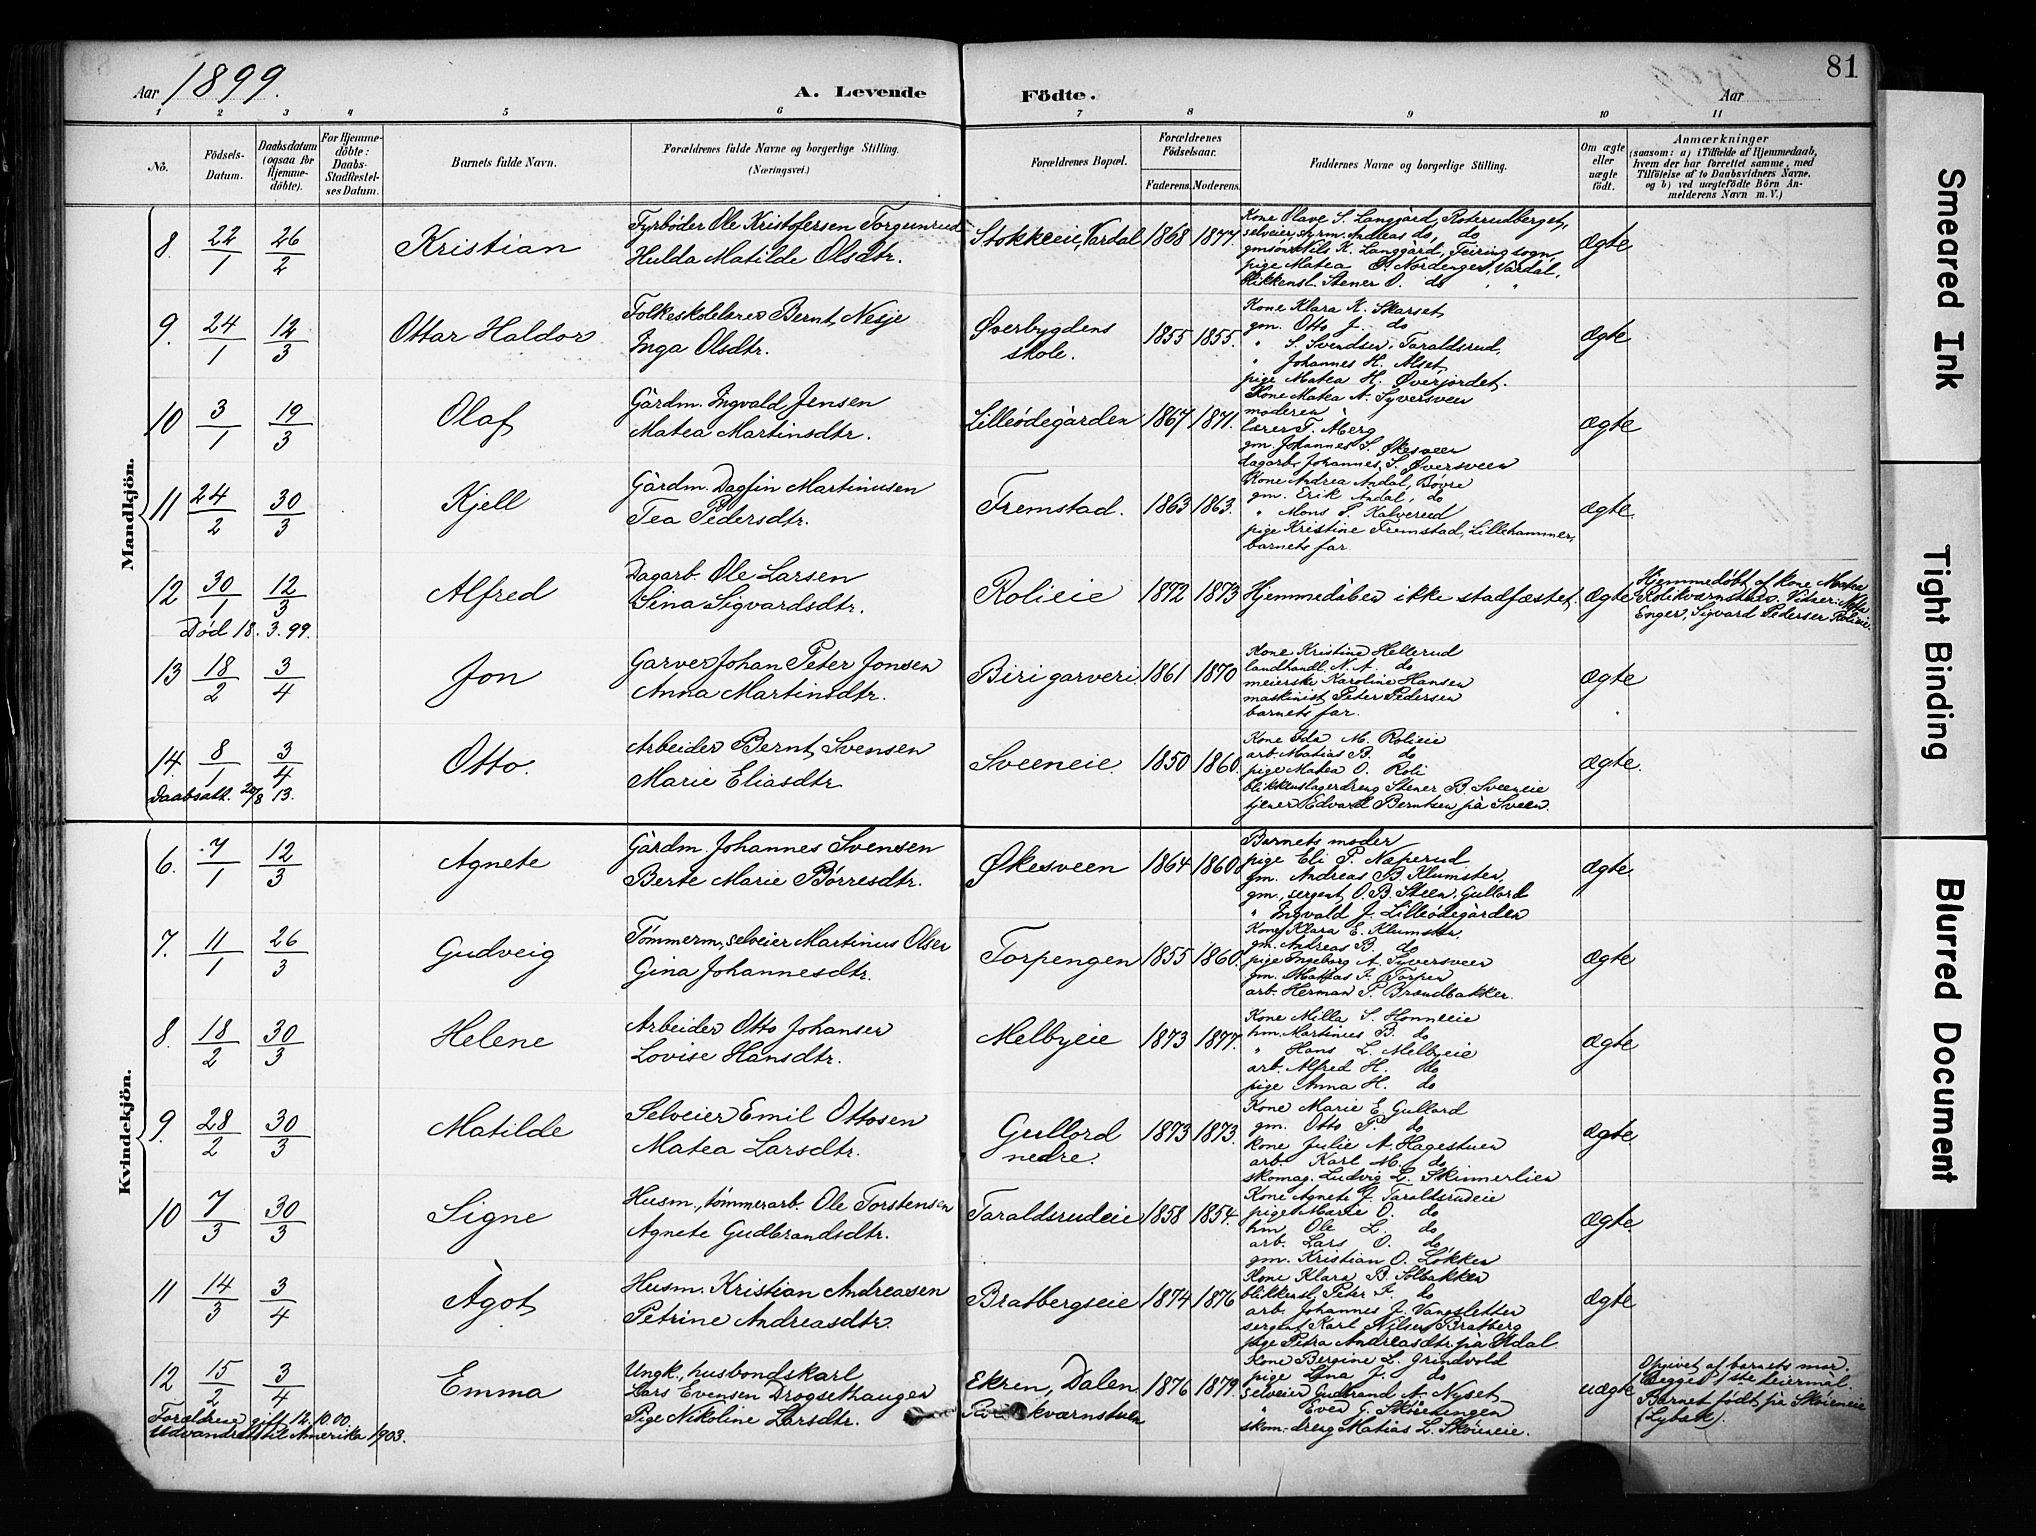 Aar 1899.
A. Levende Födte.
Aar
81
1 2 3 4 5 6 7 8 9 10 11
No.
Födsels-Datum.
Daabsdatum (ogsaa for Hjemme-döbte).
For Hjemme-döbte: Daabs-Stadfæstel-ses Datum.
Barnets fulde Navn.
Forældrenes fulde Navne og borgerlige Stilling.
(Næringsvei.)
Forældrenes Bopæl.
Forældrenes Födselsaar.
Faderens. Moderens.
Faddernes Navne og borgerlige Stilling.
Om ægte eller uægte födt.
Anmærkninger
(saasom: a) i Tilfælde af Hjemmedaab, hvem der har forrettet samme, med Tilföielse af to Daabsvidners Navne, og b) ved uægtefödte Börn An-melderens Navn m. V.)
Mandkjön.
8. 22/1 26/2 Kristian
Fyrbøder Ole Kristofersen Torgunrud
Hulda Matilde Olsdtr.
Stokkeeie, Vardal 1868 1877.
Kone Olave S. Langgård, Roterudberget,
selveier, Andreas do, do
gmsön Nils K. Langgård, Feiring sogn
pige Matea O. Nordenger, Vardal,
blikkensl. Stener O. do " "
ægte
9. 24/1 12/3 Ottar Haldor
Folkeskolelærer Bernt Nesje
Inga Olsdtr.
Øverbygdens skole. 1855 1855.
Kone Klara K. Skarset
gm. Otto J. do
" S. Svendsen, Taraldsrud,
" Johannes H. Alset
pige Matea H. Øverjordet.
ægte
10 3/1 19/3 Olaf
Gårdm. Ingvald Jensen
Matea Martinsdtr.
Lilleødegården 1867 1871.
Kone Matea A. Syversveen
moderen
lærer T. Mærg
gm. Johannes S. Økesveen
dagarb. Johannes S. Øversveen
ægte
11 24/2 30/3 Kjell
Gårdm. Dagfin Martinusen
Tea Pedersdtr.
Fremstad. 1863 1863.
Kone Andrea Andal, Bovre
gm. Erik Andal, do
" Mons P. Kalverud
pige Kristine Fremstad, Lillehammer,
barnets far.
ægte.
12 30/1 12/3 Alfred
Død 18. 3. 99.
Dagarb. Ole Larsen
Sina Sigvardsdtr.
Rolieie 1872 1873
Hjemmedåben ikke stadfæstet.
ægte
Hjemmedøbt af kone Matea
Rolikværnstuen. Vidner:
Enger, Sigvard Pedersen Rolieie.
13 18/2 3/4 Jon
Garver Johan Peter Jonsen
Anna Martinsdtr.
Biri garveri 1861 1870
Kone Kristine Hellerud
landhandl. N. A. do
meierske Karoline Hansen
maskinist Peter Pedersen
barnets far.
ægte
14. 8/1 3/4 Otto.
Daabsatt. 20/8 13.
Arbeider Bernt Svensen
Marie Eliasdtr
Sveeneie. 1850 1860.
Kone Ida M. Rolieie
arb. Matias B. do
pige Matea O. Roli
blikkenslagerdreng Stener B. Sveeneie
tjener Edvard Berntsen på Sveen.
ægte.
Kvindekjön.
6. 7/1 12/3 Agnete
Gårdm. Johannes Svensen
Berte Marie Børresdtr.
Økesveen 1864 1860.
Barnets moder
pige Eli P. Næperud
gm. Andreas B. Klumsten,
gm., sergent O. B. Steen, Gullord
" Ingvald J. Lilleødegården
ægte
7. 11/1 26/3 Gudveig
Tømmerm., selveier Martinus Olsen
Gina Johannesdtr.
Torpengen 1855 1860.
Kone Klara E. Klumsten,
gm. Andreas B. do
pige Ingeborg A. Syversveen
gm. Mattias F. Torpen
arb. Herman P. Brændbakken.
ægte
8. 18/2 30/3 Helene
Arbeider Otto Johansen
Lovise Hansdtr.
Melbyeie 1873 1877.
Kone Milla S. Honneeie
hm. Martinus B. do
" Hans L. Melbyeie
arb. Alfred H. do
pige Anna H. do
ægte
9. 28/2 30/3 Matilde
Selveier Emil Ottosen
Matea Larsdtr.
Gullord nedre. 1873 1873.
Kone Marie E. Gullord
gm. Otto P. do
kone Julie A. Hagestuen
arb. Karl M. do
skomag. Ludvig L. Skinnerlien
ægte.
10 7/3 30/3 Signe
Husm., tømmerarb. Ole Torstensen
Agnete Gudbrandsdtr.
Taraldsrudeie 1858 1854.
Kone Agnete J. Taraldsrudeie
pige Marie O. do
hm Ole L. do
arb. Lars O. do
gm. Kristian O. Løkken
ægte
11 14/3 3/4 Ågot
Husm. Kristian Andreasen
Petrine Andreasdtr.
Bratbergseie 1874 1876
Kone Klara B. Solbakken
blikkensl. Peter F. do
arb. Johannes J. Vangsletten
sergent Karl Nilsen Bratberg
pige Petra Andreasdtr. på Hdal
ægte
12 15/2 3/4 Emma
Forældrene gift 12.10.00.
Udvandret til Amerika 1903.
Ungk., husbondskarl
Lars Evensen Drogsethaugen
Pige Nikoline Larsdtr.
Ekren, Dalen 1876 1879.
kværnstuen
Kone Bergine L. Grindvold
pige Lina J. do
selveier Gudbrand A. Nyset
" Even J. Skøienengen
skom.dreng Matias L. Skøieneie.
uægte
Opgivet af barnets mor.
Begges 1ste leiermål.
Barnet født på Skøieneie
(Lybæk).
Smeared Ink
Tight Binding
Blurred Document